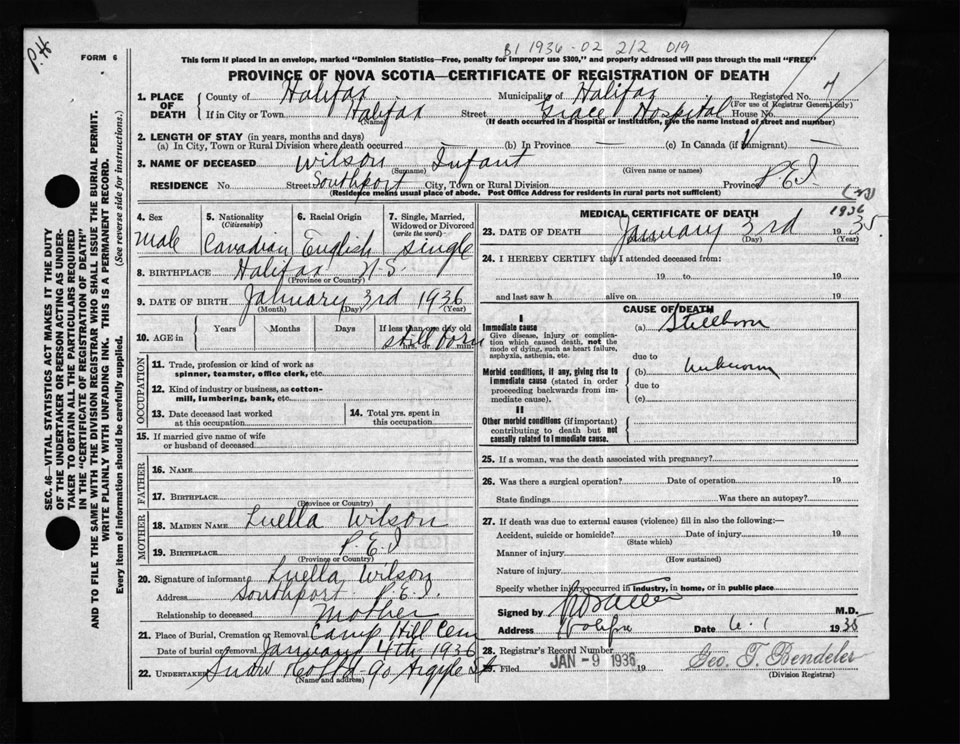 P.H
B1 1936-02 212 019
FORM 6
This form if placed in an envelope, marked "Dominion Statistics—Free, penalty for improper use $300," and properly addressed will pass through the mail "FREE"
PROVINCE OF NOVA SCOTIA—CERTIFICATE OF REGISTRATION OF DEATH
1. PLACE OF DEATH County of Halifax Municipality of Halifax Registered No. 7
(For use of Registrar General only)
If in City or Town Halifax Street Grace Hospital House No.
(Name) (If death occurred in a hospital or institution, give the name instead of street and number)
2. LENGTH OF STAY (in years, months and days)
(a) In City, Town or Rural Division where death occurred — (b) In Province — (c) In Canada (if immigrant) —
3. NAME OF DECEASED Wilson Infant
(Surname) (Given name or names)
RESIDENCE No. Street Southport City, Town or Rural Division Province P.E.I.
(Residence means usual place of abode. Post Office Address for residents in rural parts not sufficient)
4. Sex Male
5. Nationality (Citizenship) Canadian
6. Racial Origin English
7. Single, Married, Widowed or Divorced (write the word) Single
8. BIRTHPLACE Halifax N.S.
(Province or Country)
9. DATE OF BIRTH January 3rd 1936
(Month) (Day) (Year)
10. AGE in Years Months Days If less than one day old hrs. or min.
Still born
OCCUPATION
11. Trade, profession or kind of work as spinner, teamster, office clerk, etc.
12. Kind of industry or business, as cotton-mill, lumbering, bank, etc.
13. Date deceased last worked at this occupation
14. Total yrs. spent in this occupation
15. If married give name of wife or husband of deceased
FATHER
16. NAME
17. BIRTHPLACE
(Province or Country)
MOTHER
18. MAIDEN NAME Luella Wilson
19. BIRTHPLACE P.E.I
(Province or Country)
20. Signature of informant Luella Wilson
Address Southport P.E.I.
Relationship to deceased Mother
21. Place of Burial, Cremation or Removal Camp Hill Cem
Date of burial or removal January 4th 1936
22. UNDERTAKER Snow & Co Ltd 90 Argyle St
(Name and address)
MEDICAL CERTIFICATE OF DEATH
1936
23. DATE OF DEATH January 3rd 1935.
(Month) (Day) (Year)
24. I HEREBY CERTIFY that I attended deceased from:
19 to 19
and last saw h alive on 19
CAUSE OF DEATH
I
Immediate cause
Give disease, injury or complication which caused death, not the mode of dying, such as heart failure, asphyxia, asthenia, etc.
(a) Stillborn
due to
Morbid conditions, if any, giving rise to immediate cause (stated in order proceeding backwards from immediate cause).
(b) Unknown
due to
(c)
II
Other morbid conditions (if important) contributing to death but not causally related to immediate cause.
25. If a woman, was the death associated with pregnancy?
26. Was there a surgical operation? Date of operation 19
State findings Was there an autopsy?
27. If death was due to external causes (violence) fill in also the following:—
Accident, suicide or homicide? Date of injury 19
(State which)
Manner of injury
(How sustained)
Nature of injury
Specify whether injury occurred in industry, in home, or in public place
Signed by M.D.
Address Halifax Date 6.1 1936
28. Registrar's Record Number
29. Filed JAN - 9 1936 19 Geo. T. Bendeler
(Division Registrar)
SEC. 46—VITAL STATISTICS ACT MAKES IT THE DUTY
OF THE UNDERTAKER OR PERSON ACTING AS UNDER-
TAKER TO OBTAIN ALL THE PARTICULARS REQUIRED
IN THE "CERTIFICATE OF REGISTRATION OF DEATH"
AND TO FILE THE SAME WITH THE DIVISION REGISTRAR WHO SHALL ISSUE THE BURIAL PERMIT.
WRITE PLAINLY WITH UNFADING INK. THIS IS A PERMANENT RECORD.
Every item of information should be carefully supplied. (See reverse side for instructions.)